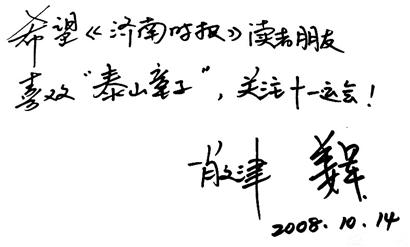 希望《济南时报》读者朋友
喜欢“泰山童子”，关注十一运会！
2008.10.14